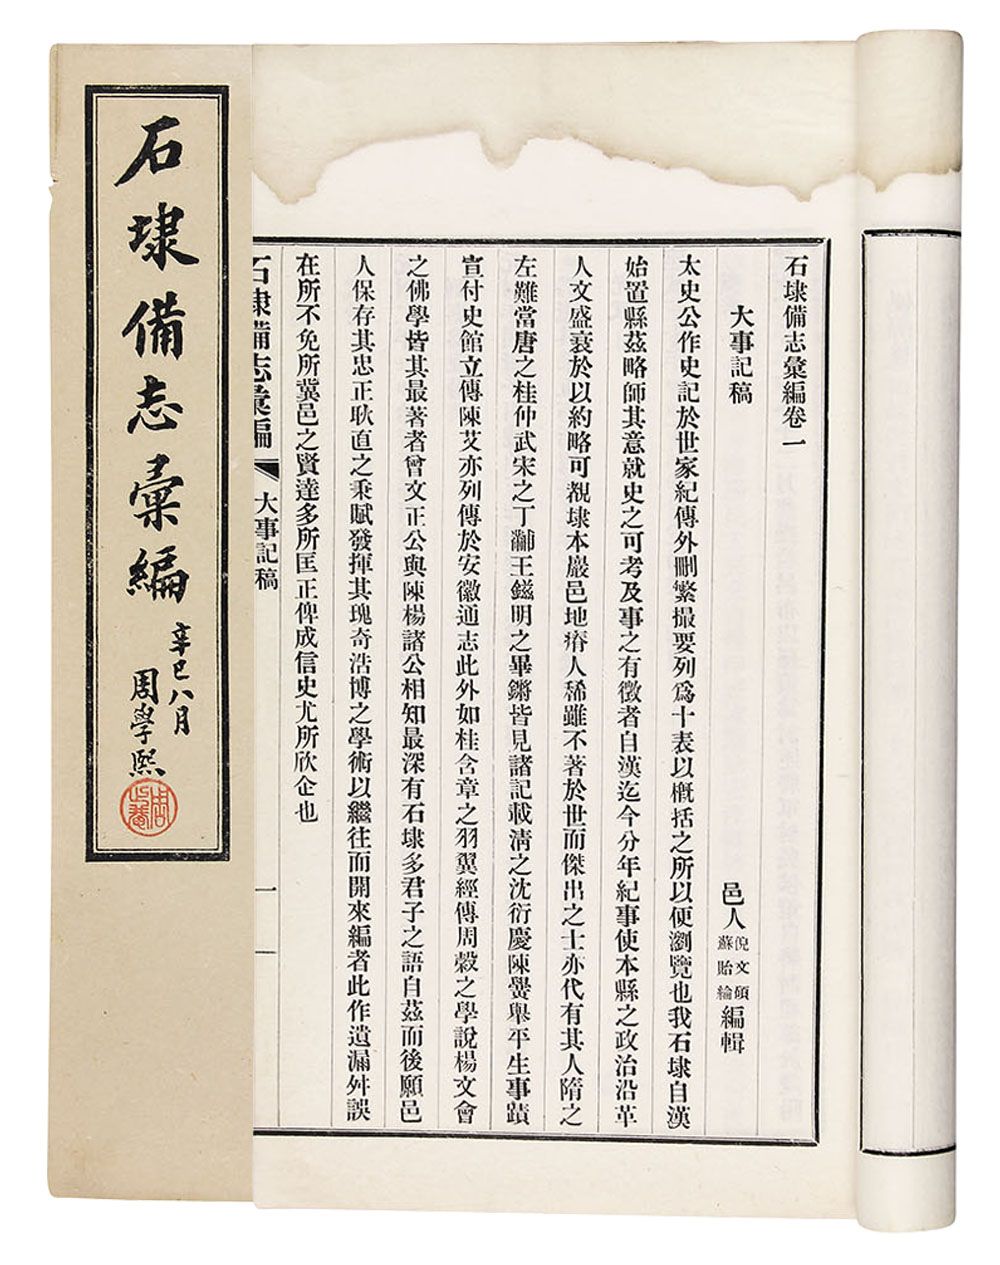 石埭備志彙編
辛巳八月
周學熙
石埭備志彙編卷一
大事記稿
邑人
倪文碩
蘇貽綸
編輯
太史公作史記於世家紀傳外刪繁撮要列爲十表以概括之所以便瀏覽也我石埭自漢
始置縣茲略師其意就史之可考及事之有徵者自漢迄今分年紀事使本縣之政治沿革
人文盛衰於以約略可覩埭本巖邑地瘠人稀雖不著於世而傑出之士亦代有其人隋之
左難當唐之桂仲武宋之丁黼王鎡明之畢鏘皆見諸記載清之沈衍慶陳黌舉平生事蹟
宣付史館立傳陳艾亦列傳於安徽通志此外如桂含章之羽翼經傳周縠之學說楊文會
之佛學皆其最著者曾文正公與陳楊諸公相知最深有石埭多君子之語自茲而後願邑
人保存其忠正耿直之秉賦發揮其瑰奇浩博之學術以繼往而開來編者此作遺漏舛誤
在所不免所冀邑之賢達多所匡正俾成信史尤所欣企也
石埭備志彙編
大事記稿
一